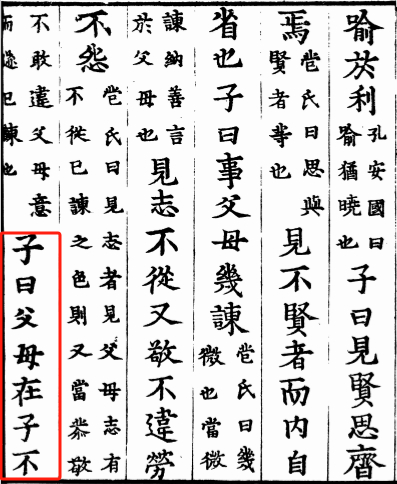 喻扵利孔安國曰喻猶曉也子曰見賢思齊
焉苞氏曰思與賢者等也見不賢者而內自
省也子曰事父母幾諫苞氏曰幾微也當微
諫納善言於父母也見志不從又敬不違勞
不怨苞氏曰見志者見父母志有不從已諫之色則又當恭敬
不敢違父母意而遂已諫也子曰父母在子不